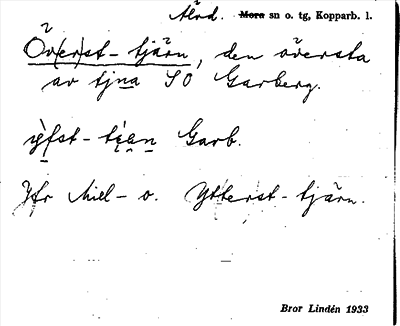 Älvd. Mora sn o. tg, Kopparb. l.
Öv(er)st-tjärn, den översta
av tjna SO Garberg.
Garb.
Jfr Miel- o. Ytterst-tjärn.
Bror Lindén 1933